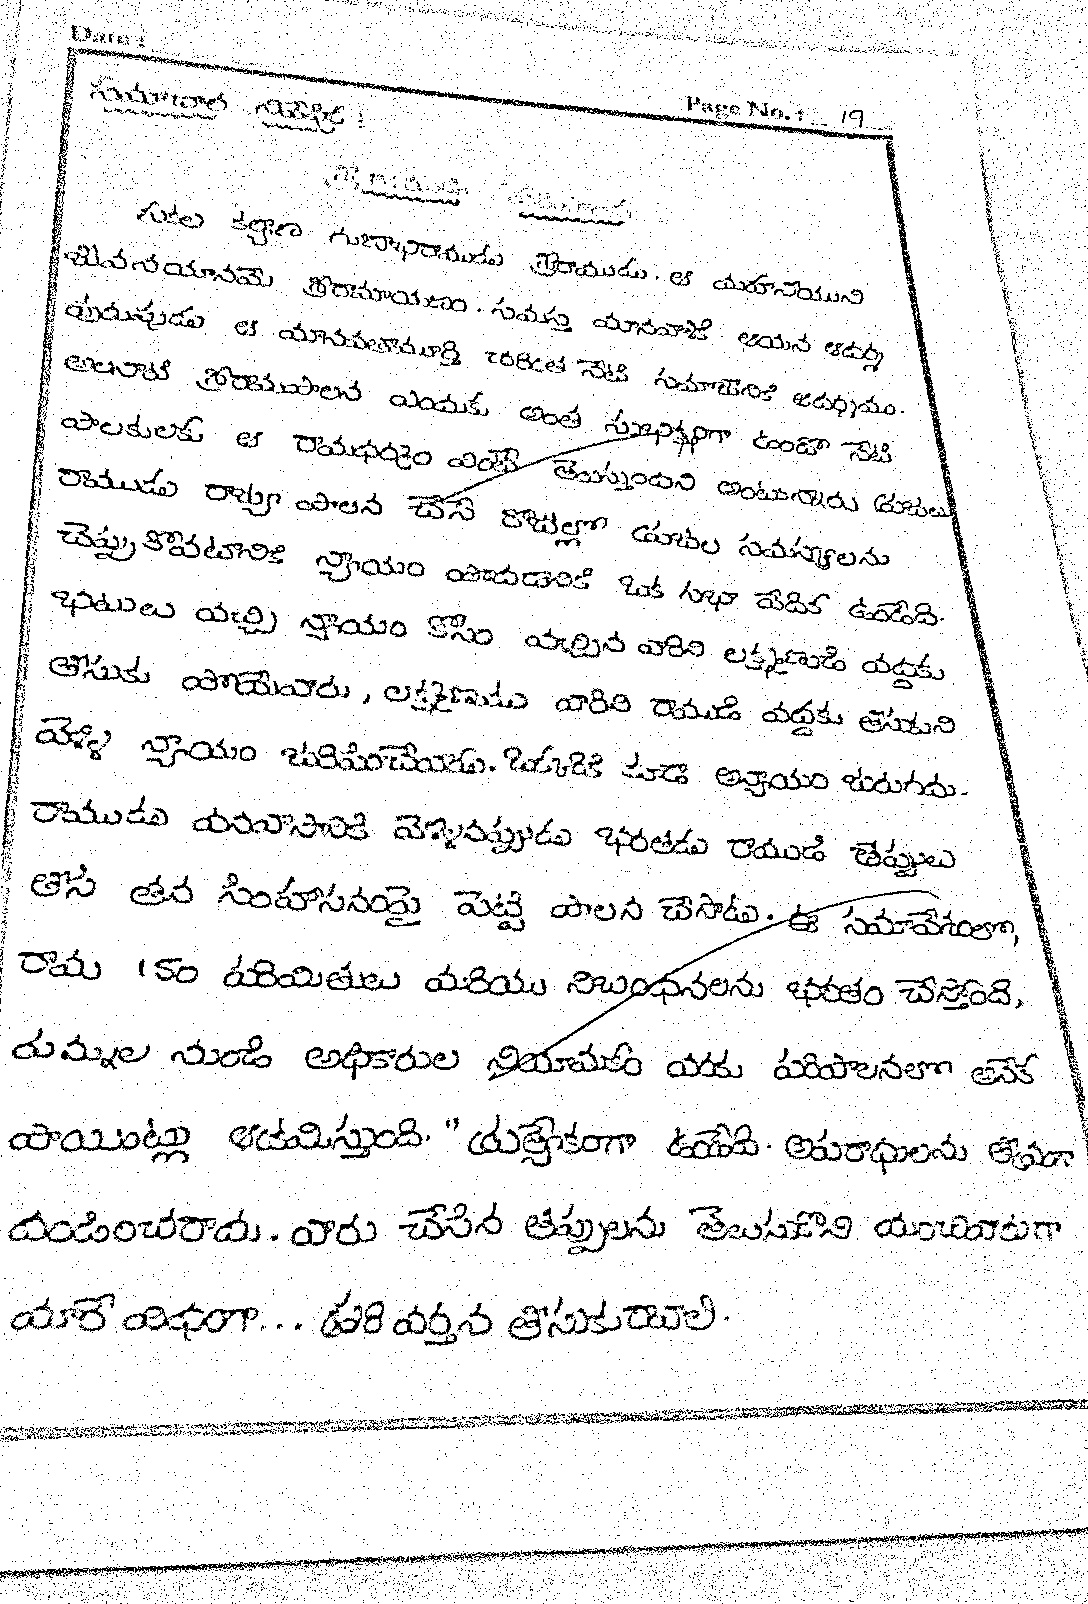 Date :
Page No. : 19
సమాచార నివేదిక :
సకల కల్యాణ గుణాభిరాముడు శ్రీరాముడు. ఆ మహనీయుని
శ్రీరామాయణం. సమస్త మానవాళికి ఆయన ఆదర్శ
పురుషుడు ఆ మానవతామూర్తి చరిత్ర నేటి సమాజానికి ఆదర్శమం.
అలనాటి శ్రీరామపాలన ఎందుకు అంత సుభిక్షంగా ఉందో నేటి
పాలకులకు ఆ రామధర్మం ఎంతో తెలుస్తుందని అంటున్నారు ప్రజలు
రాముడు రాజ్య పాలన చేసే రోజుల్లో ప్రజల సమస్యలను
చెప్పుకోవటానికి న్యాయం పొందడానికి ఒక సభా వేదిక ఉండేది.
భటులు వచ్చి న్యాయం కోసం వచ్చిన వారిని లక్ష్మణుడి వద్దకు
తీసుకు పోయేవారు, లక్ష్మణుడు వారిని రాముడి వద్దకు తీసుకుని
వెళ్ళి న్యాయం జరిపించేవాడు. ఒక్కడికి కూడా అన్యాయం జరుగదు.
రాముడు వనవాసానికి వెళ్ళినప్పుడు భరతడు రాముడి చెప్పులు
తీసి తన సింహాసనంపై పెట్టి పాలన చేసాడు. ఈ సమావేశంలో,
రామ పరిమితులు మరియు నిబంధనలను భరతం చేస్తోంది,
నుండి అధికారుల నియామకం వరకు పరిపాలనలో అనేక
పాయింట్లు ఉండేది. అపరాధులను
దండించరాదు. వారు చేసిన తప్పులను తెలుసుకొని మంచివారుగా
మారే విధంగా... పరివర్తన తీసుకురావాలి.